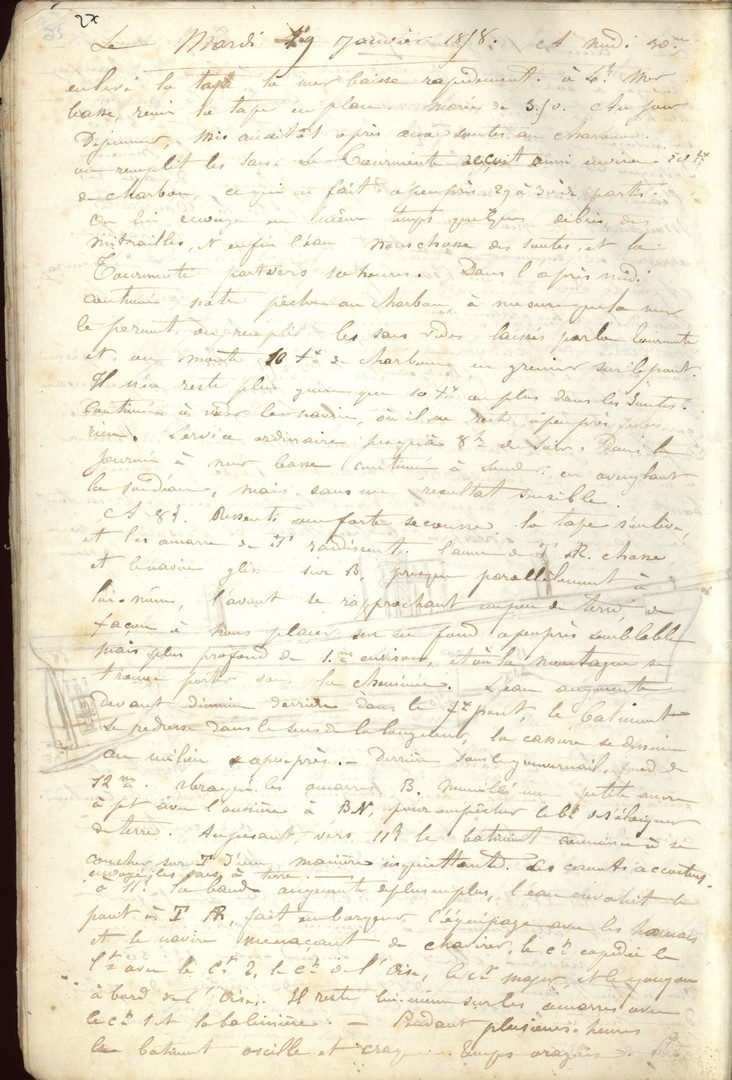 27
Le Mardi 19 Janvier 1858. A midi 30m
enlevé la tape la mer baisse rapidement. à 4h mer
basse, remis la tape en place. Marée de 3.50. Au jour
Déjeuner, mis aussitôt après aux soutes au charbon.
on remplit les sacs. La Tourmente reçoit ainsi environ 50 tx
de charbon, ce qui en fait à peu près 29 à 30 de partis.
On lui envoie en même temps quelques débris des
mitrailles, et enfin l'eau nous chasse des soutes, et la
Tourmente part vers 10 heures. Dans l'après midi
continué notre pêche au charbon à mesure que la mer
le permet, on remplit les sacs vides laissés par la Tourmente
et on monte 10 tx de charbon en grenier sur le pont.
Il n'en reste plus guère que 10 tx au plus dans les soutes.
Continué à vider le navire, où il ne reste à peu près
rien. Service ordinaire jusqu'à 8h du soir. Dans la
journée à mer basse continué à en aveuglant
la , mais sans un résultat sensible.
A 8h. Ressenti une forte secousse la tape s'enlève,
et les amarres de Td raidissent. l'ancre de Td AR. chasse
et le navire glisse sur B. presque parallèlement à
lui-même, l'avant se rapprochant un peu de terre, de
façon à nous placer sur un fond à peu près semblable
mais plus profond de 1.m environ, et où la montagne se
trouve porter sous la cheminée. L'eau augmente
devant diminue derrière dans le pont, le bâtiment
se redresse dans le sens de la longueur, la cassure se dessine
au milieu à peu près. - Derrière sous le gouvernail, fond de
12m. les amarres B. Mouillé une petite ancre
à jet avec l'aussière à B AV, pour empêcher le bt de s'éloigner
de terre. Au jusant, vers 11h le bâtiment commence à se
coucher sur Td d'une manière inquiétante. Les canots accostés,
envoyé les sacs à terre.
à 11h la bande augmente de plus en plus, l'eau envahit le
pont à T AR, fait embarquer l'équipage avec les hamacs
et le navire menaçant de chavirer, le ct expédie le
Lt avec le ct 2, le ct de l'Oise, le ct major, et le youyou
à bord de l'Oise. Il reste lui-même sur les amarres avec
le ct 1 et la baleinière. - Pendant plusieurs heures
le bâtiment oscille et craque temps orageux.